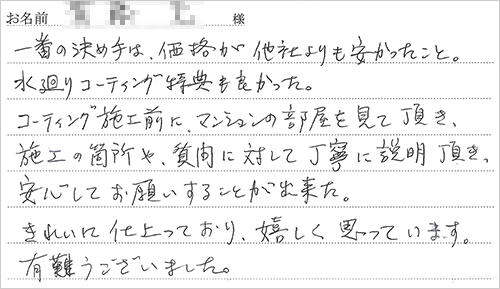 お名前 様
一番の決め手は、価格が他社よりも安かったこと。
水廻りコーティング特典も良かった。
コーティング施工前に、マンションの部屋を見て頂き、
施工の箇所や、質問に対して丁寧に説明頂き、
安心してお願いすることが出来た。
きれいに仕上っており、嬉しく思っています。
有難うございました。